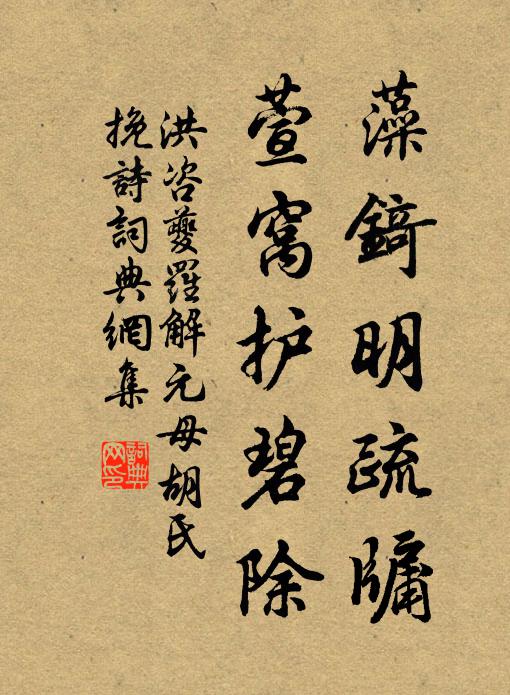 藻錡明疏牖
萱窩护碧除
洪咨夔羅解元母胡氏
挽詩詞典網集
詞典网印